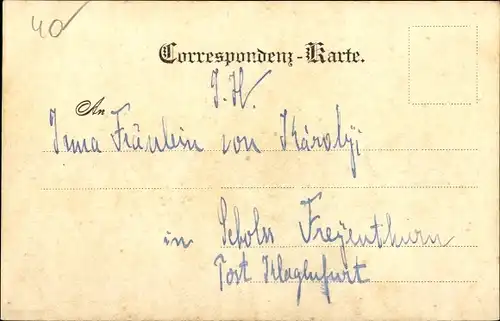 40
Correspondenz-Karte.
I. H.
An
Irma Fräulein von Károlyi
in Schloss Freyenthurn
Post Klagenfurt